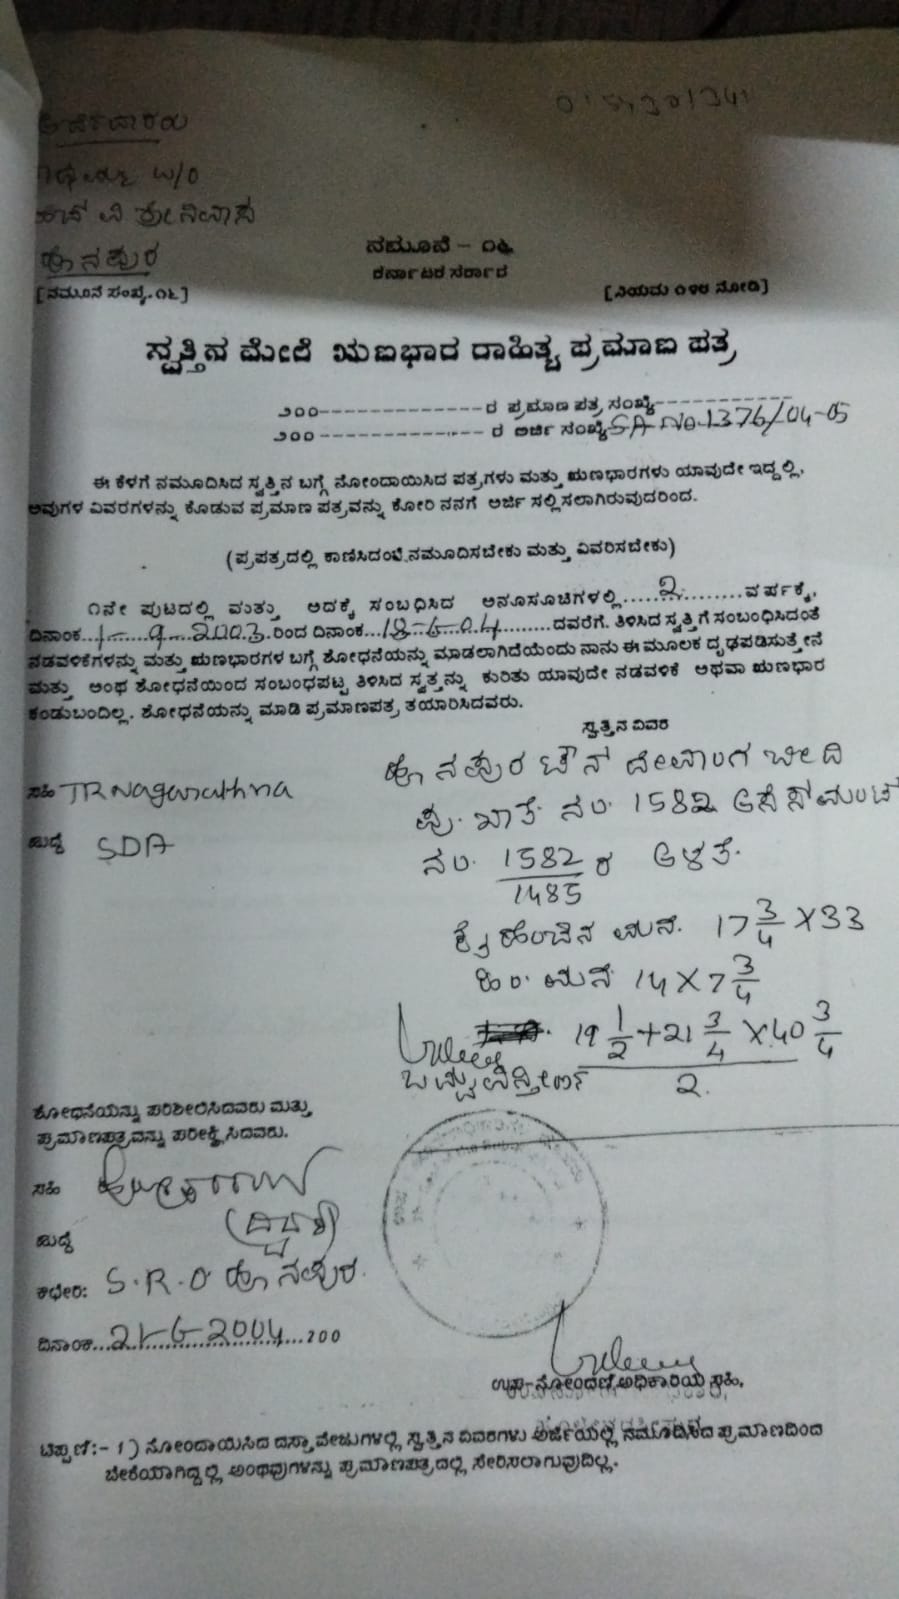 ಎಚ್ ವಿ ಶ್ರೀನಿವಾಸ
ನಮೂನೆ - ೧೬
ಕರ್ನಾಟಕ ಸರ್ಕಾರ
[ನಮೂನೆ ಸಂಖ್ಯೆ.೧೬] [ನಿಯಮ ೧೪೮ ನೋಡಿ]
ಸ್ವತ್ತಿನ ಮೇಲೆ ಋಣಭಾರ ರಾಹಿತ್ಯ ಪ್ರಮಾಣ ಪತ್ರ
೨೦೦--------------ರ ಪ್ರಮಾಣ ಪತ್ರ ಸಂಖ್ಯೆ------------
೨೦೦--------------ರ ಅರ್ಜಿ ಸಂಖ್ಯೆ SA No.1376/04-05
ಈ ಕೆಳಗೆ ನಮೂದಿಸಿದ ಸ್ವತ್ತಿನ ಬಗ್ಗೆ ನೋಂದಾಯಿಸಿದ ಪತ್ರಗಳು ಮತ್ತು ಋಣಭಾರಗಳು ಯಾವುದೇ ಇದ್ದಲ್ಲಿ,
ಅವುಗಳ ವಿವರಗಳನ್ನು ಕೊಡುವ ಪ್ರಮಾಣ ಪತ್ರವನ್ನು ಕೋರಿ ನನಗೆ ಅರ್ಜಿ ಸಲ್ಲಿಸಲಾಗಿರುವುದರಿಂದ.
(ಪ್ರಪತ್ರದಲ್ಲಿ ಕಾಣಿಸಿದಂತೆ ನಮೂದಿಸಬೇಕು ಮತ್ತು ವಿವರಿಸಬೇಕು)
೧ನೇ ಪುಟದಲ್ಲಿ ಮತ್ತು ಅದಕ್ಕೆ ಸಂಬಧಿಸಿದ ಅನೂಸೂಚಿಗಳಲ್ಲಿ.....2.........ವರ್ಷಕ್ಕೆ,
ದಿನಾಂಕ...1-9-2003 ರಿಂದ ದಿನಾಂಕ...18-6-04.......ದವರೆಗೆ. ತಿಳಿಸಿದ ಸ್ವತ್ತಿಗೆ ಸಂಬಂಧಿಸಿದಂತೆ
ನಡವಳಿಕೆಗಳನ್ನು ಮತ್ತು ಋಣಭಾರಗಳ ಬಗ್ಗೆ ಶೋಧನೆಯನ್ನು ಮಾಡಲಾಗಿದೆಯೆಂದು ನಾನು ಈ ಮೂಲಕ ದೃಢಪಡಿಸುತ್ತೇನೆ
ಮತ್ತು ಅಂಥ ಶೋಧನೆಯಿಂದ ಸಂಬಂಧಪಟ್ಟ ತಿಳಿಸಿದ ಸ್ವತ್ತನ್ನು ಕುರಿತು ಯಾವುದೇ ನಡವಳಿಕೆ ಅಥವಾ ಋಣಭಾರ
ಕಂಡುಬಂದಿಲ್ಲ. ಶೋಧನೆಯನ್ನು ಮಾಡಿ ಪ್ರಮಾಣಪತ್ರ ತಯಾರಿಸಿದವರು.
ಸ್ವತ್ತಿನ ವಿವರ
ಟೌನ್ ದೇವಾಂಗ ಬೀದಿ
ಸಹಿ TR Nagarathna
ಪು. ಖಾತೆ ನಂ. 1582 ಅಸೆಸ್‌ಮೆಂಟ್
ಹುದ್ದೆ SDA
ನಂ. 1582/1485 ರ ಅಳತೆ.
ಹೆಂಚಿನ ಮನೆ. 17 3/4 X 33
ಹಿಂ. ಮನೆ 14 X 7 3/4
19 1/2 + 21 3/4 X 40 3/4
2.
ಒಟ್ಟು ವಿಸ್ತೀರ್ಣ
ಶೋಧನೆಯನ್ನು ಪರಿಶೀಲಿಸಿದವರು ಮತ್ತು
ಪ್ರಮಾಣಪತ್ರವನ್ನು ಪರೀಕ್ಷಿಸಿದವರು.
ಸಹಿ
ಹುದ್ದೆ
ಕಛೇರಿ: S.R.O
ದಿನಾಂಕ...21-6-2004...200
ಉಪ-ನೋಂದಣಿ ಅಧಿಕಾರಿಯ ಸಹಿ.
ಟಿಪ್ಪಣಿ:- 1) ನೋಂದಾಯಿಸಿದ ದಸ್ತಾವೇಜುಗಳಲ್ಲಿ ಸ್ವತ್ತಿನ ವಿವರಗಳು ಅರ್ಜಿಯಲ್ಲಿ ನಮೂದಿಸಿದ ಪ್ರಮಾಣದಿಂದ
ಬೇರೆಯಾಗಿದ್ದಲ್ಲಿ ಅಂಥವುಗಳನ್ನು ಪ್ರಮಾಣಪತ್ರದಲ್ಲಿ ಸೇರಿಸಲಾಗುವುದಿಲ್ಲ.